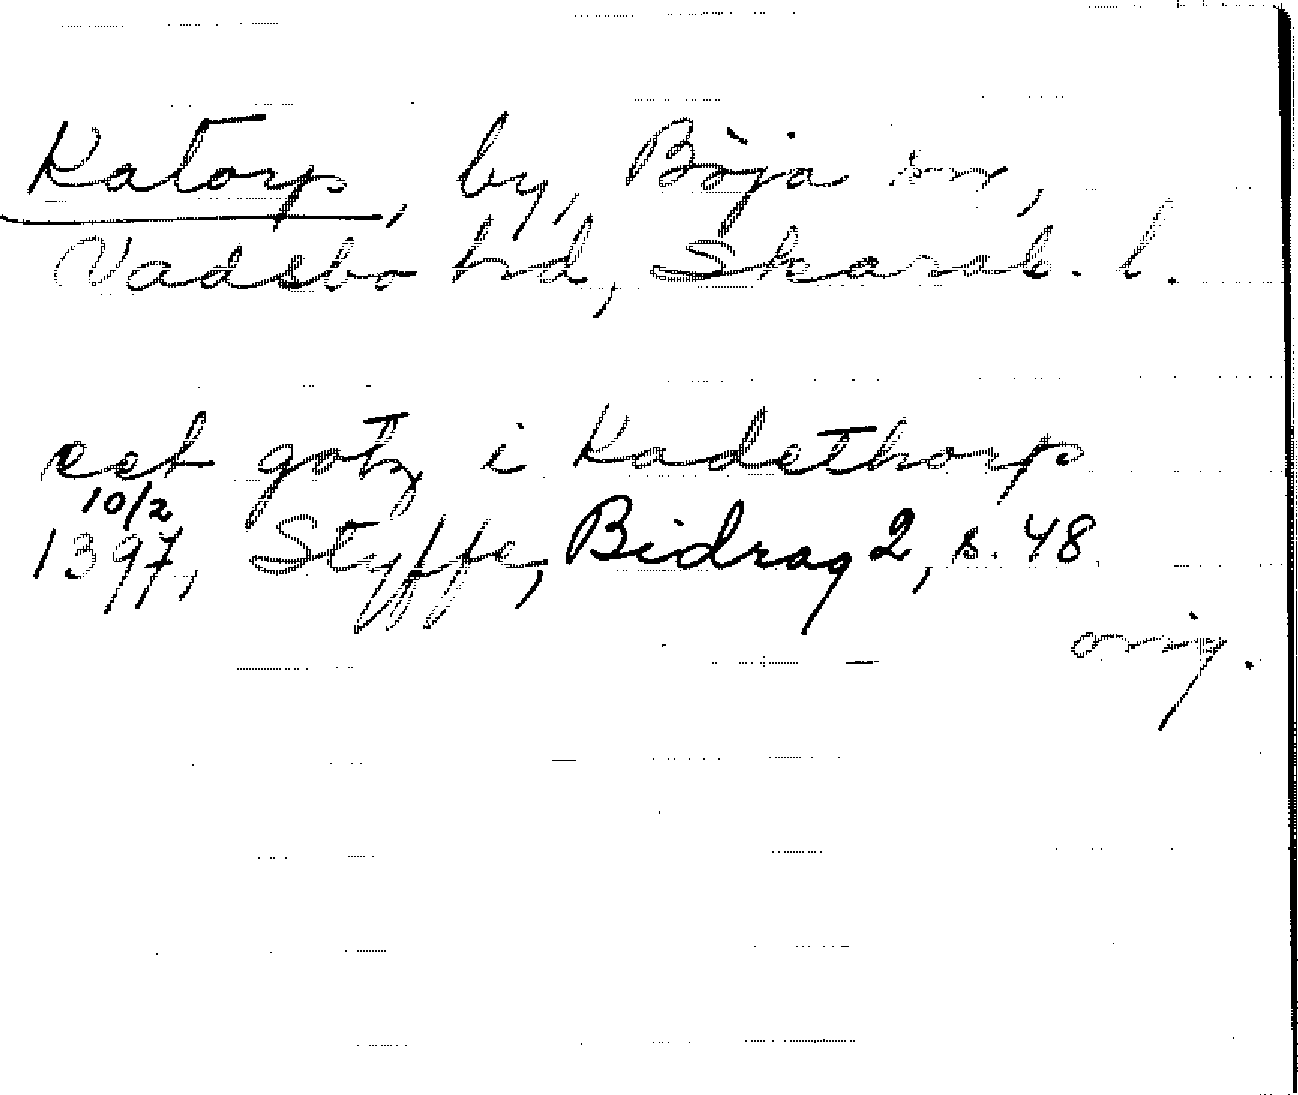 Katorp, by, Böja sn,
Vadsbo hd, Skarab. l.
eet gotz i Kadethorp
10/2
1397, Styffe, Bidrag 2, s. 48
orig.